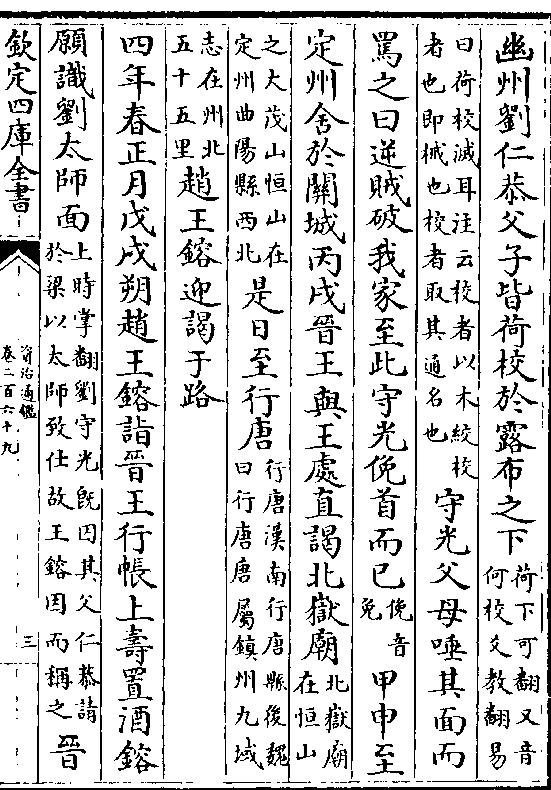 幽州劉仁恭父子皆荷校於露布之下荷下可翻又音
何校爻教翻易
曰荷校滅耳注云校者以木絞校
者也即械也校者取其通名也守光父母唾其面而
罵之曰逆賊破我家至此守光俛首而已俛音
免甲申至
定州舍於關城丙戌晉王與王處直謁北嶽廟北嶽廟
在恒山
之大茂山恒山在
定州曲陽縣西北是日至行唐行唐漢南行唐縣後魏
曰行唐唐屬鎮州九域
志在州北
五十五里趙王鎔迎謁于路
四年春正月戊戌朔趙王鎔詣晉王行帳上壽置酒鎔
願識劉太師面上時掌翻劉守光既囚其父仁恭請
於梁以太師致仕故王鎔因而稱之晉
欽定四庫全書
資治通鑑
卷二百六十九
三